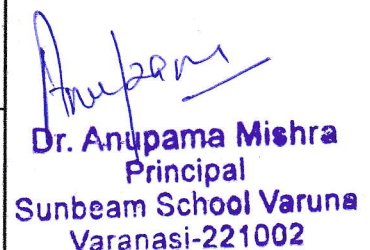 Anupama
Dr. Anupama Mishra
Principal
Sunbeam School Varuna
Varanasi-221002